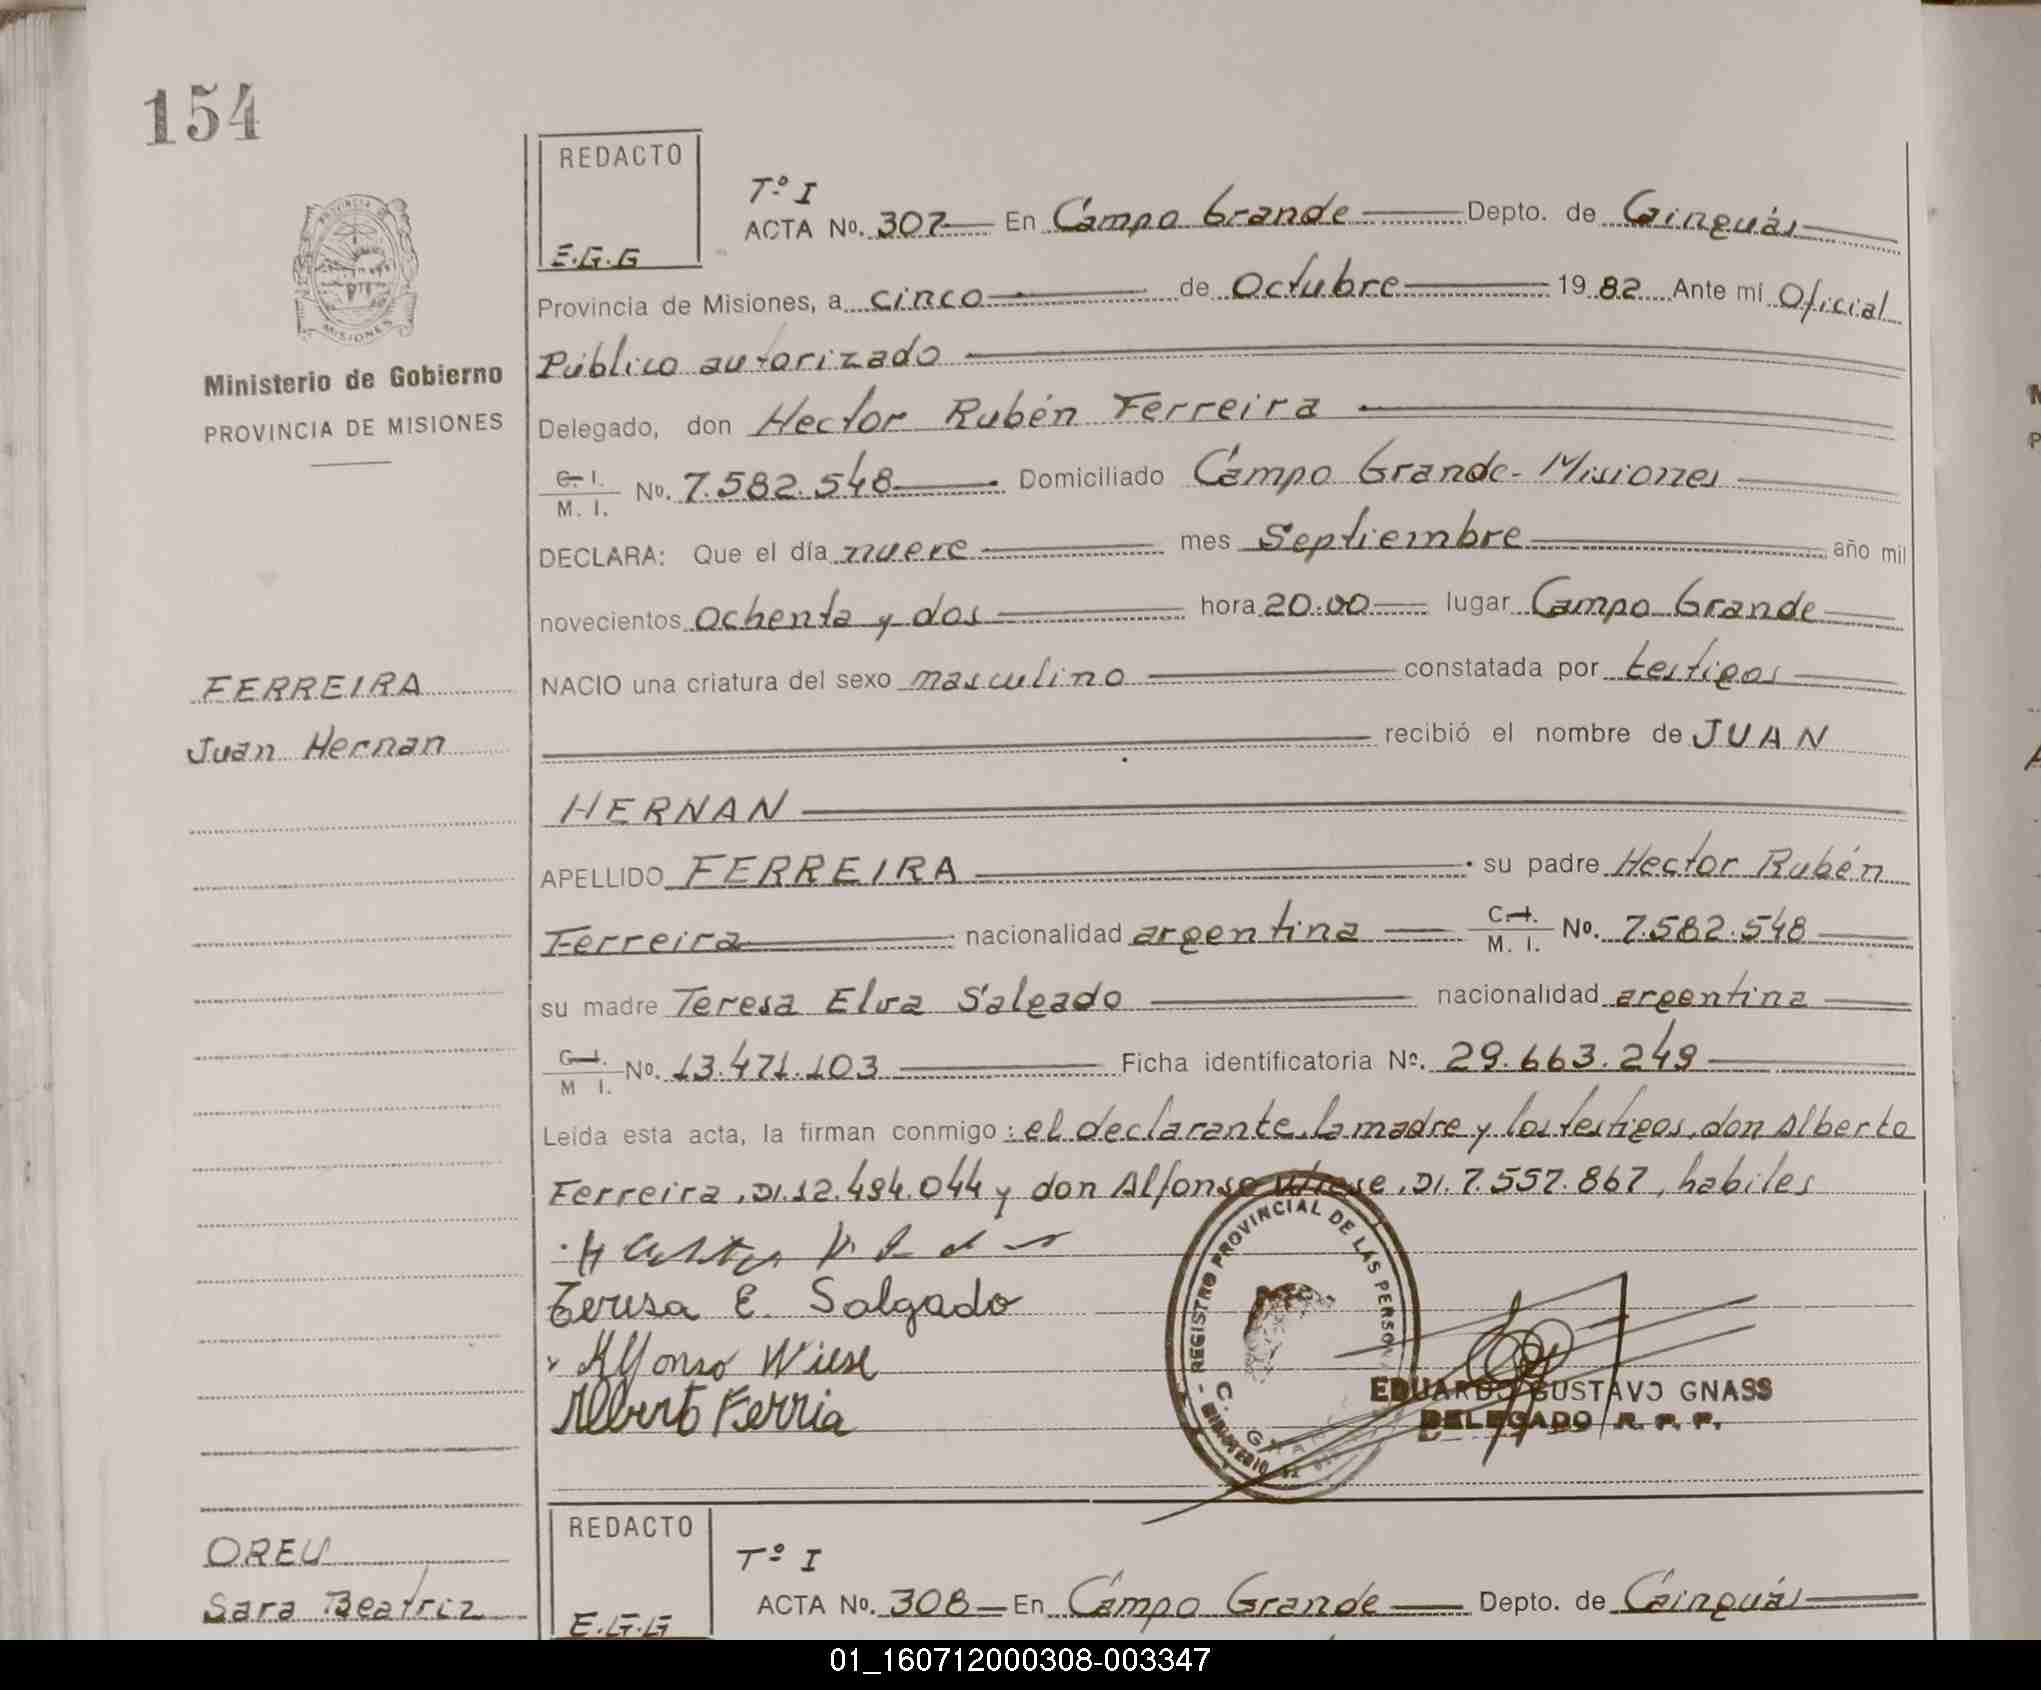 154
REDACTO
E.G.G
PROVINCIA DE
MISIONES
Ministerio de Gobierno
PROVINCIA DE MISIONES
Tº I
ACTA Nº. 307 En Campo Grande Depto. de Cainguás
Provincia de Misiones, a cinco de Octubre 19 82 Ante mi Oficial
Público autorizado
Delegado, don Hector Rubén Ferreira
C. I.
M. I. Nº. 7.582.548 Domiciliado Campo Grande - Misiones
DECLARA: Que el día nueve mes Septiembre año mil
novecientos ochenta y dos hora 20.00 lugar Campo Grande
FERREIRA
Juan Hernan
NACIO una criatura del sexo masculino constatada por testigos
recibió el nombre de JUAN
HERNAN
APELLIDO FERREIRA su padre Hector Rubén
Ferreira nacionalidad argentina C. I. M. I. Nº. 7.582.548
su madre Teresa Elva Salgado nacionalidad argentina
C. I. M I. Nº. 13.471.103 Ficha identificatoria Nº. 29.663.249
Leída esta acta, la firman conmigo: el declarante, la madre y los testigos, don Alberto
Ferreira, DI. 12.494.044 y don Alfonso Wiese, DI. 7.557.867, habiles
Teresa E. Salgado
Alfonso Wiese
Alberto Ferria
REGISTRO PROVINCIAL DE LAS PERSON
EDUARDO GUSTAVO GNASS
DELEGADO R. P. P.
OREU
Sara Beatriz
REDACTO
E.G.G
Tº I
ACTA Nº. 308 En Campo Grande Depto. de Cainguás
01_160712000308-003347